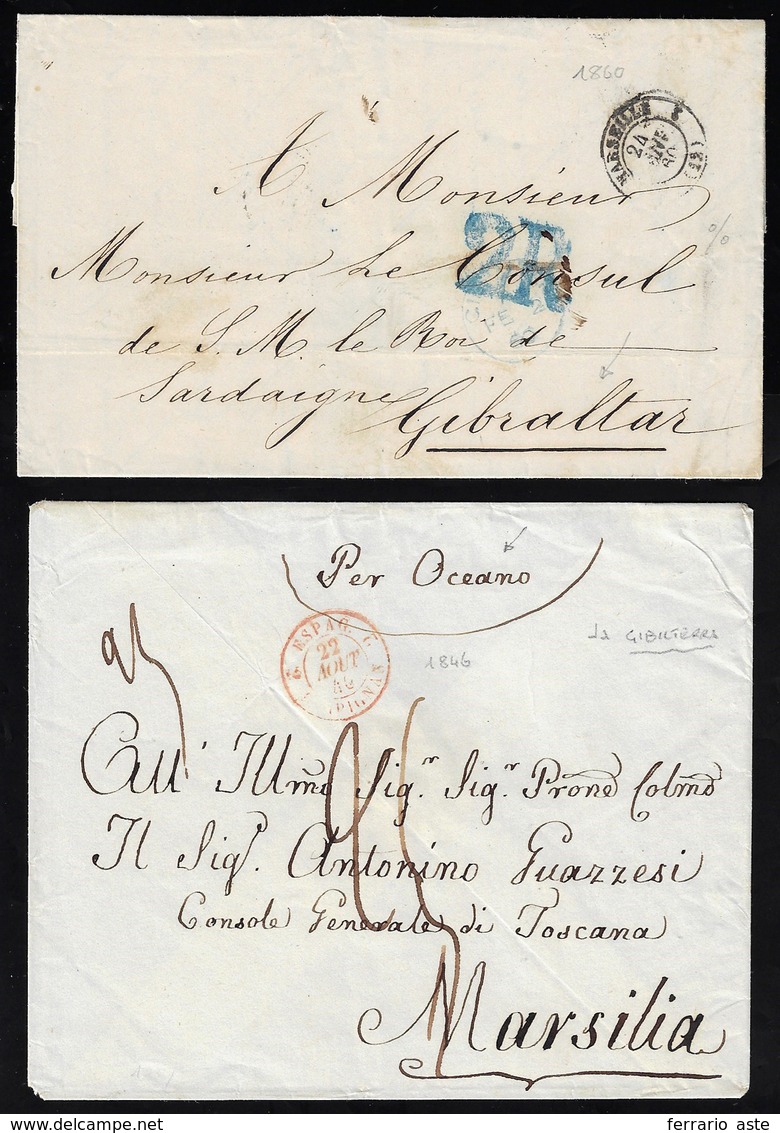 1860
MARSEILLE
24
60
(12)
À Monsieur
2R
%
Monsieur Le Consul
FE 2
de S. M. le Roi de
Sardaigne
Gibraltar
Per Oceano
ESPAG.
22
AOUT
46
PIGNAN
1846
da GIBILTERRA
All' Illmo Sigr. Sigr. Prone Colmo
Il Sigr. Antonino Guazzesi
Console Generale di Toscana
Marsilia
ferrario aste